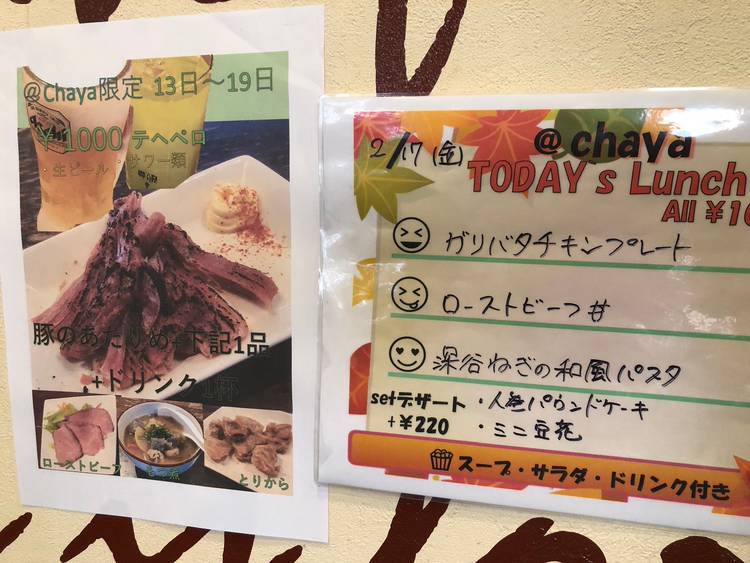 @Chaya限定 13日〜19日
¥1000 テヘペロ
・生ビール ・サワー類
豚のあたりめ+下記1品
+ドリンク1杯
ローストビーフ
もつ煮
とりから
@chaya
2/17(金)
TODAY s Lunch
All ¥10
ガリバタチキンプレート
ローストビーフ丼
深谷ねぎの和風パスタ
setデザート ・人参パウンドケーキ
+¥220 ・ミニ豆花
スープ・サラダ・ドリンク付き